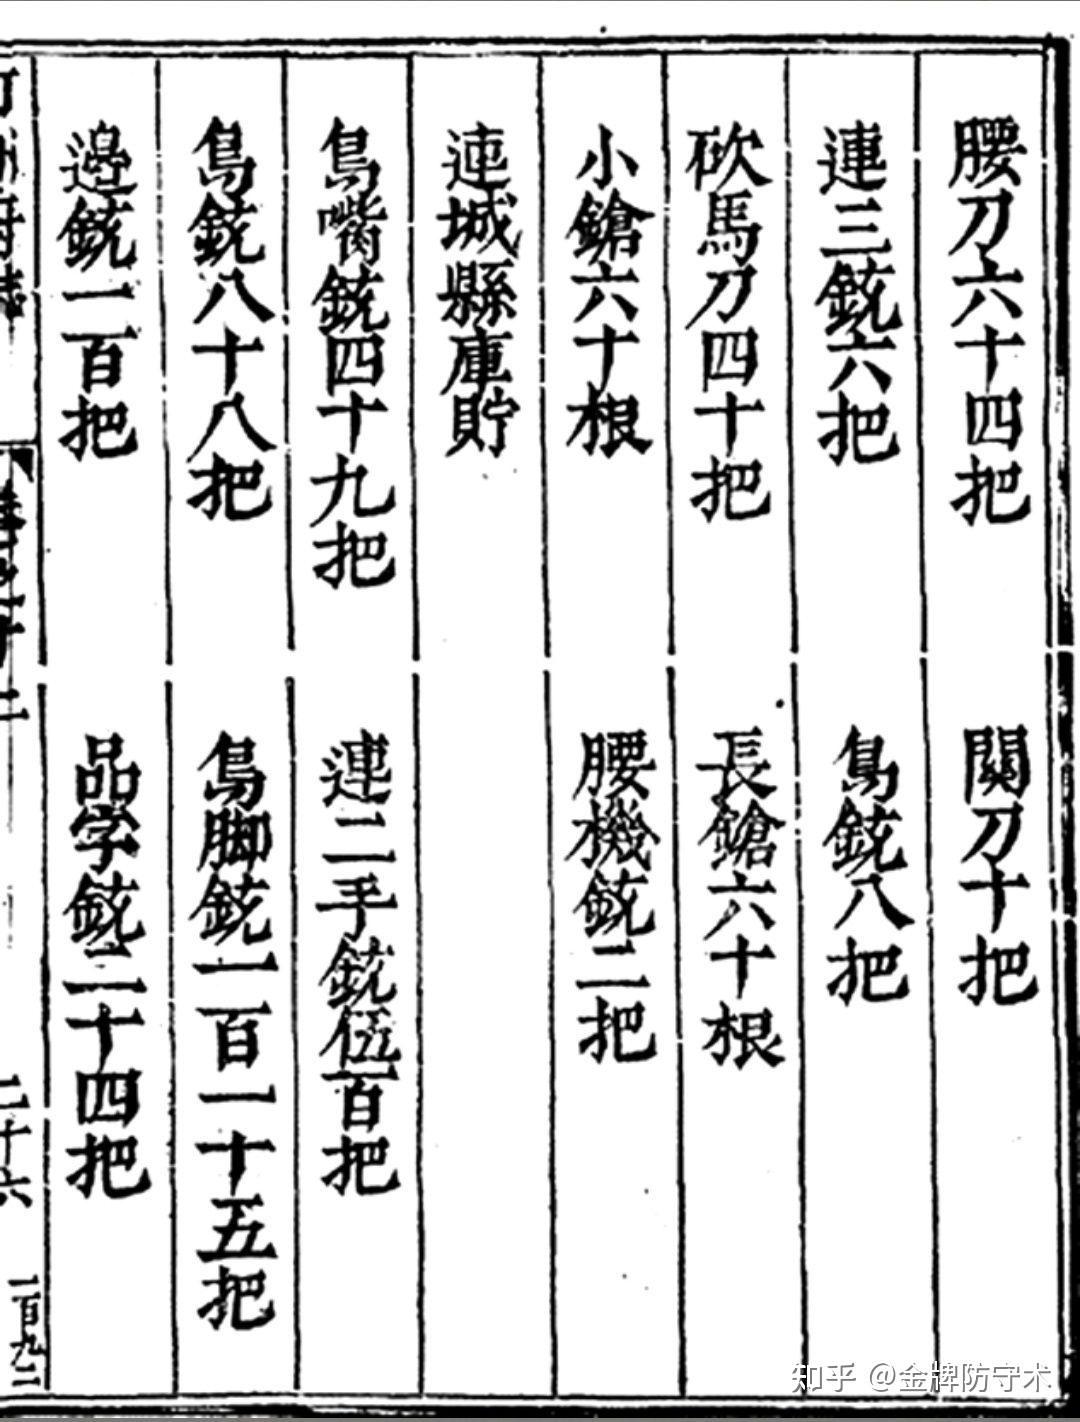 腰刀六十四把
關刀十把
連三銃六把
鳥銃八把
砍馬刀四十把
長鎗六十根
小鎗六十根
腰機銃二把
連城縣庫貯
鳥嘴銃四十九把
連二手銃伍百把
鳥銃八十八把
鳥脚銃一百一十五把
邉銃一百把
品字銃二十四把
二十六
一百九二
知乎 @金牌防守术